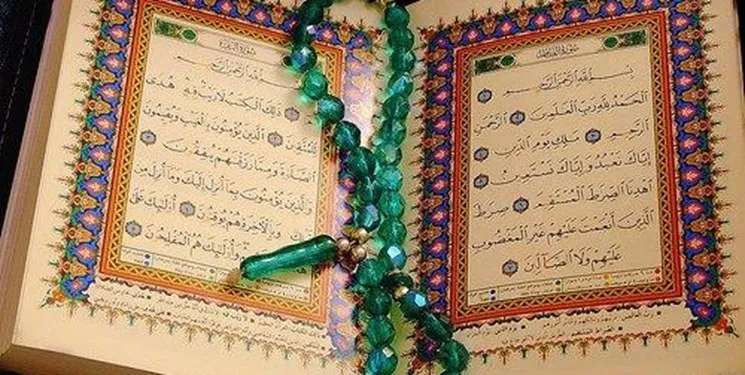 سُورَةُ الْفَاتِحَةِ
بِسْمِ اللَّهِ الرَّحْمَٰنِ الرَّحِيمِ
الْحَمْدُ لِلَّهِ رَبِّ الْعَٰلَمِينَ الرَّحْمَٰنِ
الرَّحِيمِ مَٰلِكِ يَوْمِ الدِّينِ
إِيَّاكَ نَعْبُدُ وَإِيَّاكَ نَسْتَعِينُ
اهْدِنَا الصِّرَٰطَ الْمُسْتَقِيمَ صِرَٰطَ
الَّذِينَ أَنْعَمْتَ عَلَيْهِمْ غَيْرِ الْمَغْضُوبِ
عَلَيْهِمْ وَلَا الضَّالِّينَ
سُورَةُ الْبَقَرَةِ
بِسْمِ اللَّهِ الرَّحْمَٰنِ الرَّحِيمِ
ذَٰلِكَ الْكِتَٰبُ لَا رَيْبَ فِيهِ هُدًى
لِلْمُتَّقِينَ الَّذِينَ يُؤْمِنُونَ بِالْغَيْبِ وَيُقِيمُونَ
الصَّلَوٰةَ وَمِمَّا رَزَقْنَٰهُمْ يُنفِقُونَ
وَالَّذِينَ يُؤْمِنُونَ بِمَا أُنزِلَ إِلَيْكَ وَمَا أُنزِلَ مِن
وَبِالْآخِرَةِ هُمْ يُوقِنُونَ أُولَٰئِكَ عَلَىٰ
وَأُولَٰئِكَ هُمُ الْمُفْلِحُونَ